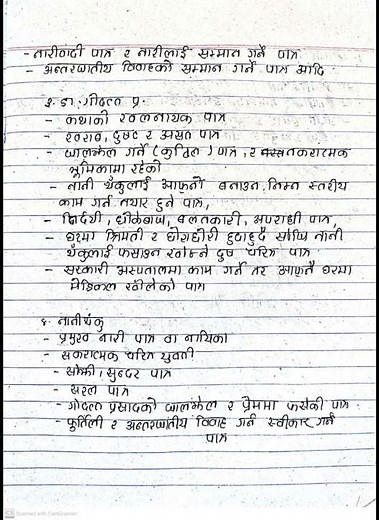 - नारीवादी पात्र र नारीलाई सम्मान गर्ने पात्र
- अन्तरजातीय विवाहको सम्मान गर्ने पात्र आदि
२. डा. गोदत्त प्र.
- कथाको खलनायक पात्र
- खराब, दुष्ट र असत पात्र
- जालझेल गर्ने (कुटिल) पात्र, र नकारात्मक
भूमिकामा रहेको
- नानी थँकुलाई आफ्नो बनाउन निम्न स्तरीय
काम गर्न तयार हुने पात्र,
- निर्दयी, धोकेबाज, बलत्कारी, अपराधी पात्र,
- घरमा श्रीमती र छोराछोरी हुदाहुदै सोझि नानी
थँकुलाई फसाउन खोज्ने दुष्ट चरित्र पात्र
- सरकारी अस्पतालमा काम गर्ने तर आफ्नै घरमा
मेडिकल खोलेको पात्र
३. नानीथँकु
- प्रमुख नारी पात्र वा नायिका
- सकारात्मक चरित्र युवती
- सोझी, सुन्दर पात्र
- सरल पात्र
- गोदत्त प्रसादको जालझेल र प्रेममा फसेकी पात्र
- फुर्तिली र अन्तरजातीय विवाह गर्न स्वीकार गर्ने
पात्र
CS Scanned with CamScanner